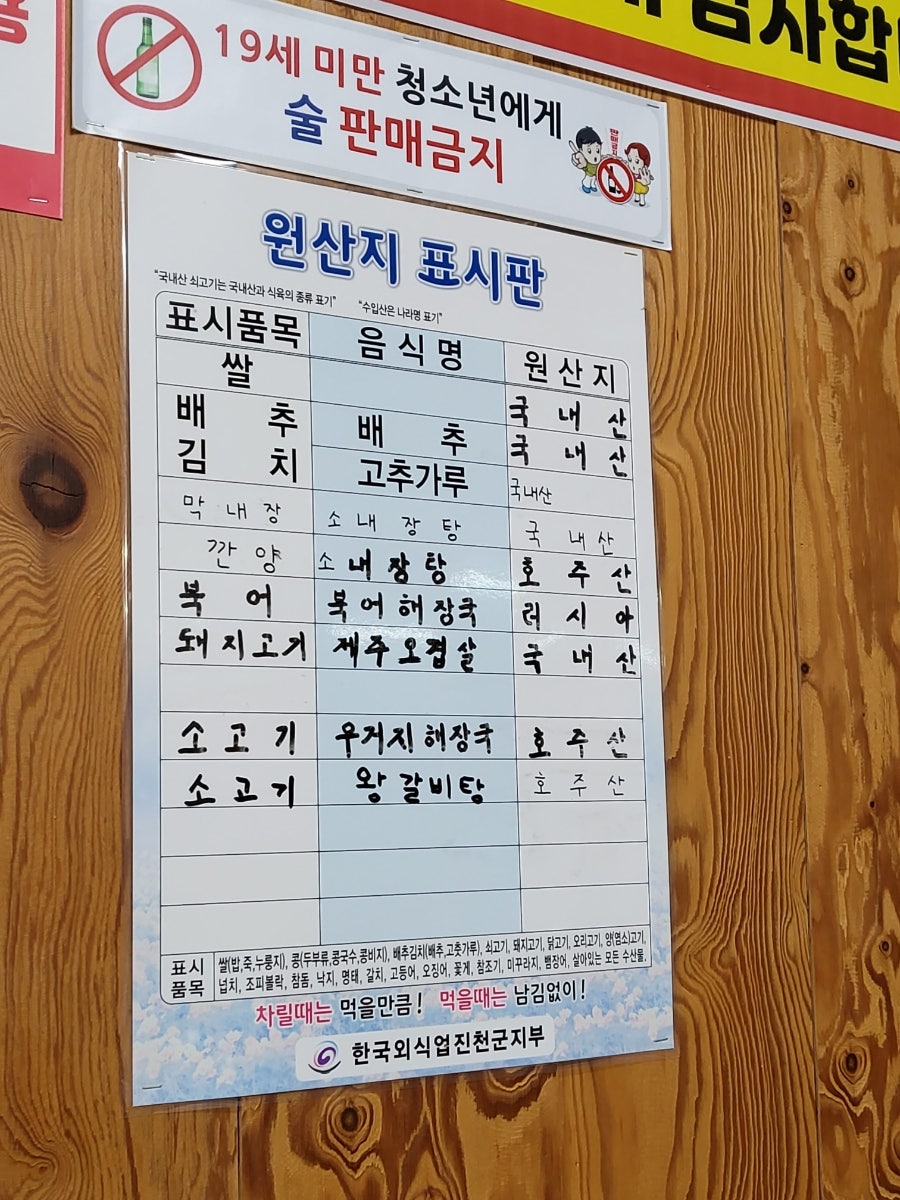 19세 미만 청소년에게
술 판매금지
판매금지
원산지 표시판
"국내산 쇠고기는 국내산과 식육의 종류 표기" "수입산은 나라명 표기"
표시품목 음식명 원산지
쌀 국내산
배추김치 배추 국내산
고추가루 국내산
막내장 소내장탕 국내산
깐양 소내장탕 호주산
북어 북어해장국 러시아
돼지고기 제주오겹살 국내산
소고기 우거지해장국 호주산
소고기 왕갈비탕 호주산
표시품목 쌀(밥,죽,누룽지), 콩(두부류,콩국수,콩비지), 배추김치(배추,고춧가루), 쇠고기, 돼지고기, 닭고기, 오리고기, 양(염소)고기,
넙치, 조피볼락, 참돔, 낙지, 명태, 갈치, 고등어, 오징어, 꽃게, 참조기, 미꾸라지, 뱀장어, 살아있는 모든 수산물,
차릴때는 먹을만큼! 먹을때는 남김없이!
한국외식업진천군지부